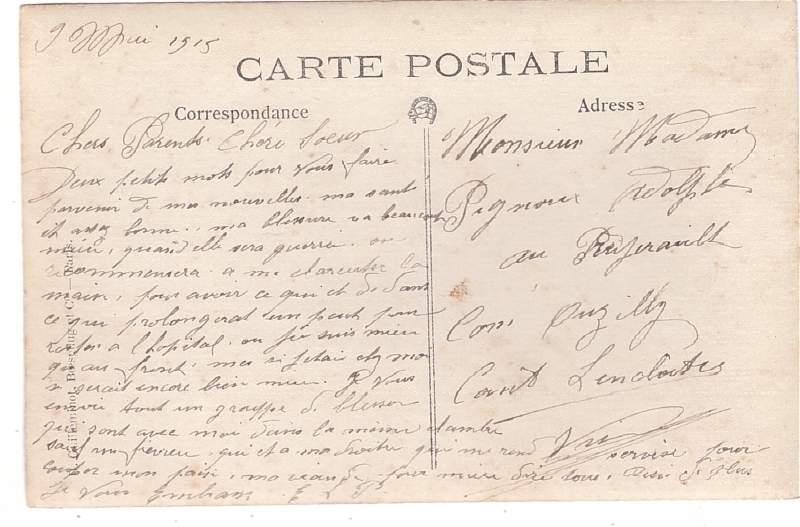 9 Mai 1915
CARTE POSTALE
Correspondance
Adresse
Chers Parents. Chère Soeur
Deux petits mots pour vous faire
parvenir de mes nouvelles. ma santé
et assez bonne. ma blessure va beaucoup
mieu, quand elle sera guerrie. on
recommensera a me la
main, pour avoir ce qui et de dant
ce qui prolongerat un peut mon
a l'hopital. ou je suis mieu
qu au front. mes si jetais ché moi
se serait encore bien mieu. Je vous
envoie tout un grouppe de blesser
qui sont avec moi dans la même chambre
sauf un qui et a ma droite qui me rend service pour
couper mon pain, ma viande, pour mieu dire tous. Rien de plus
Je vous embrasse
Monsieur Madame
Pignoux Adolphe
au
Com Ouzilly
Cant Lencloitre
Vne